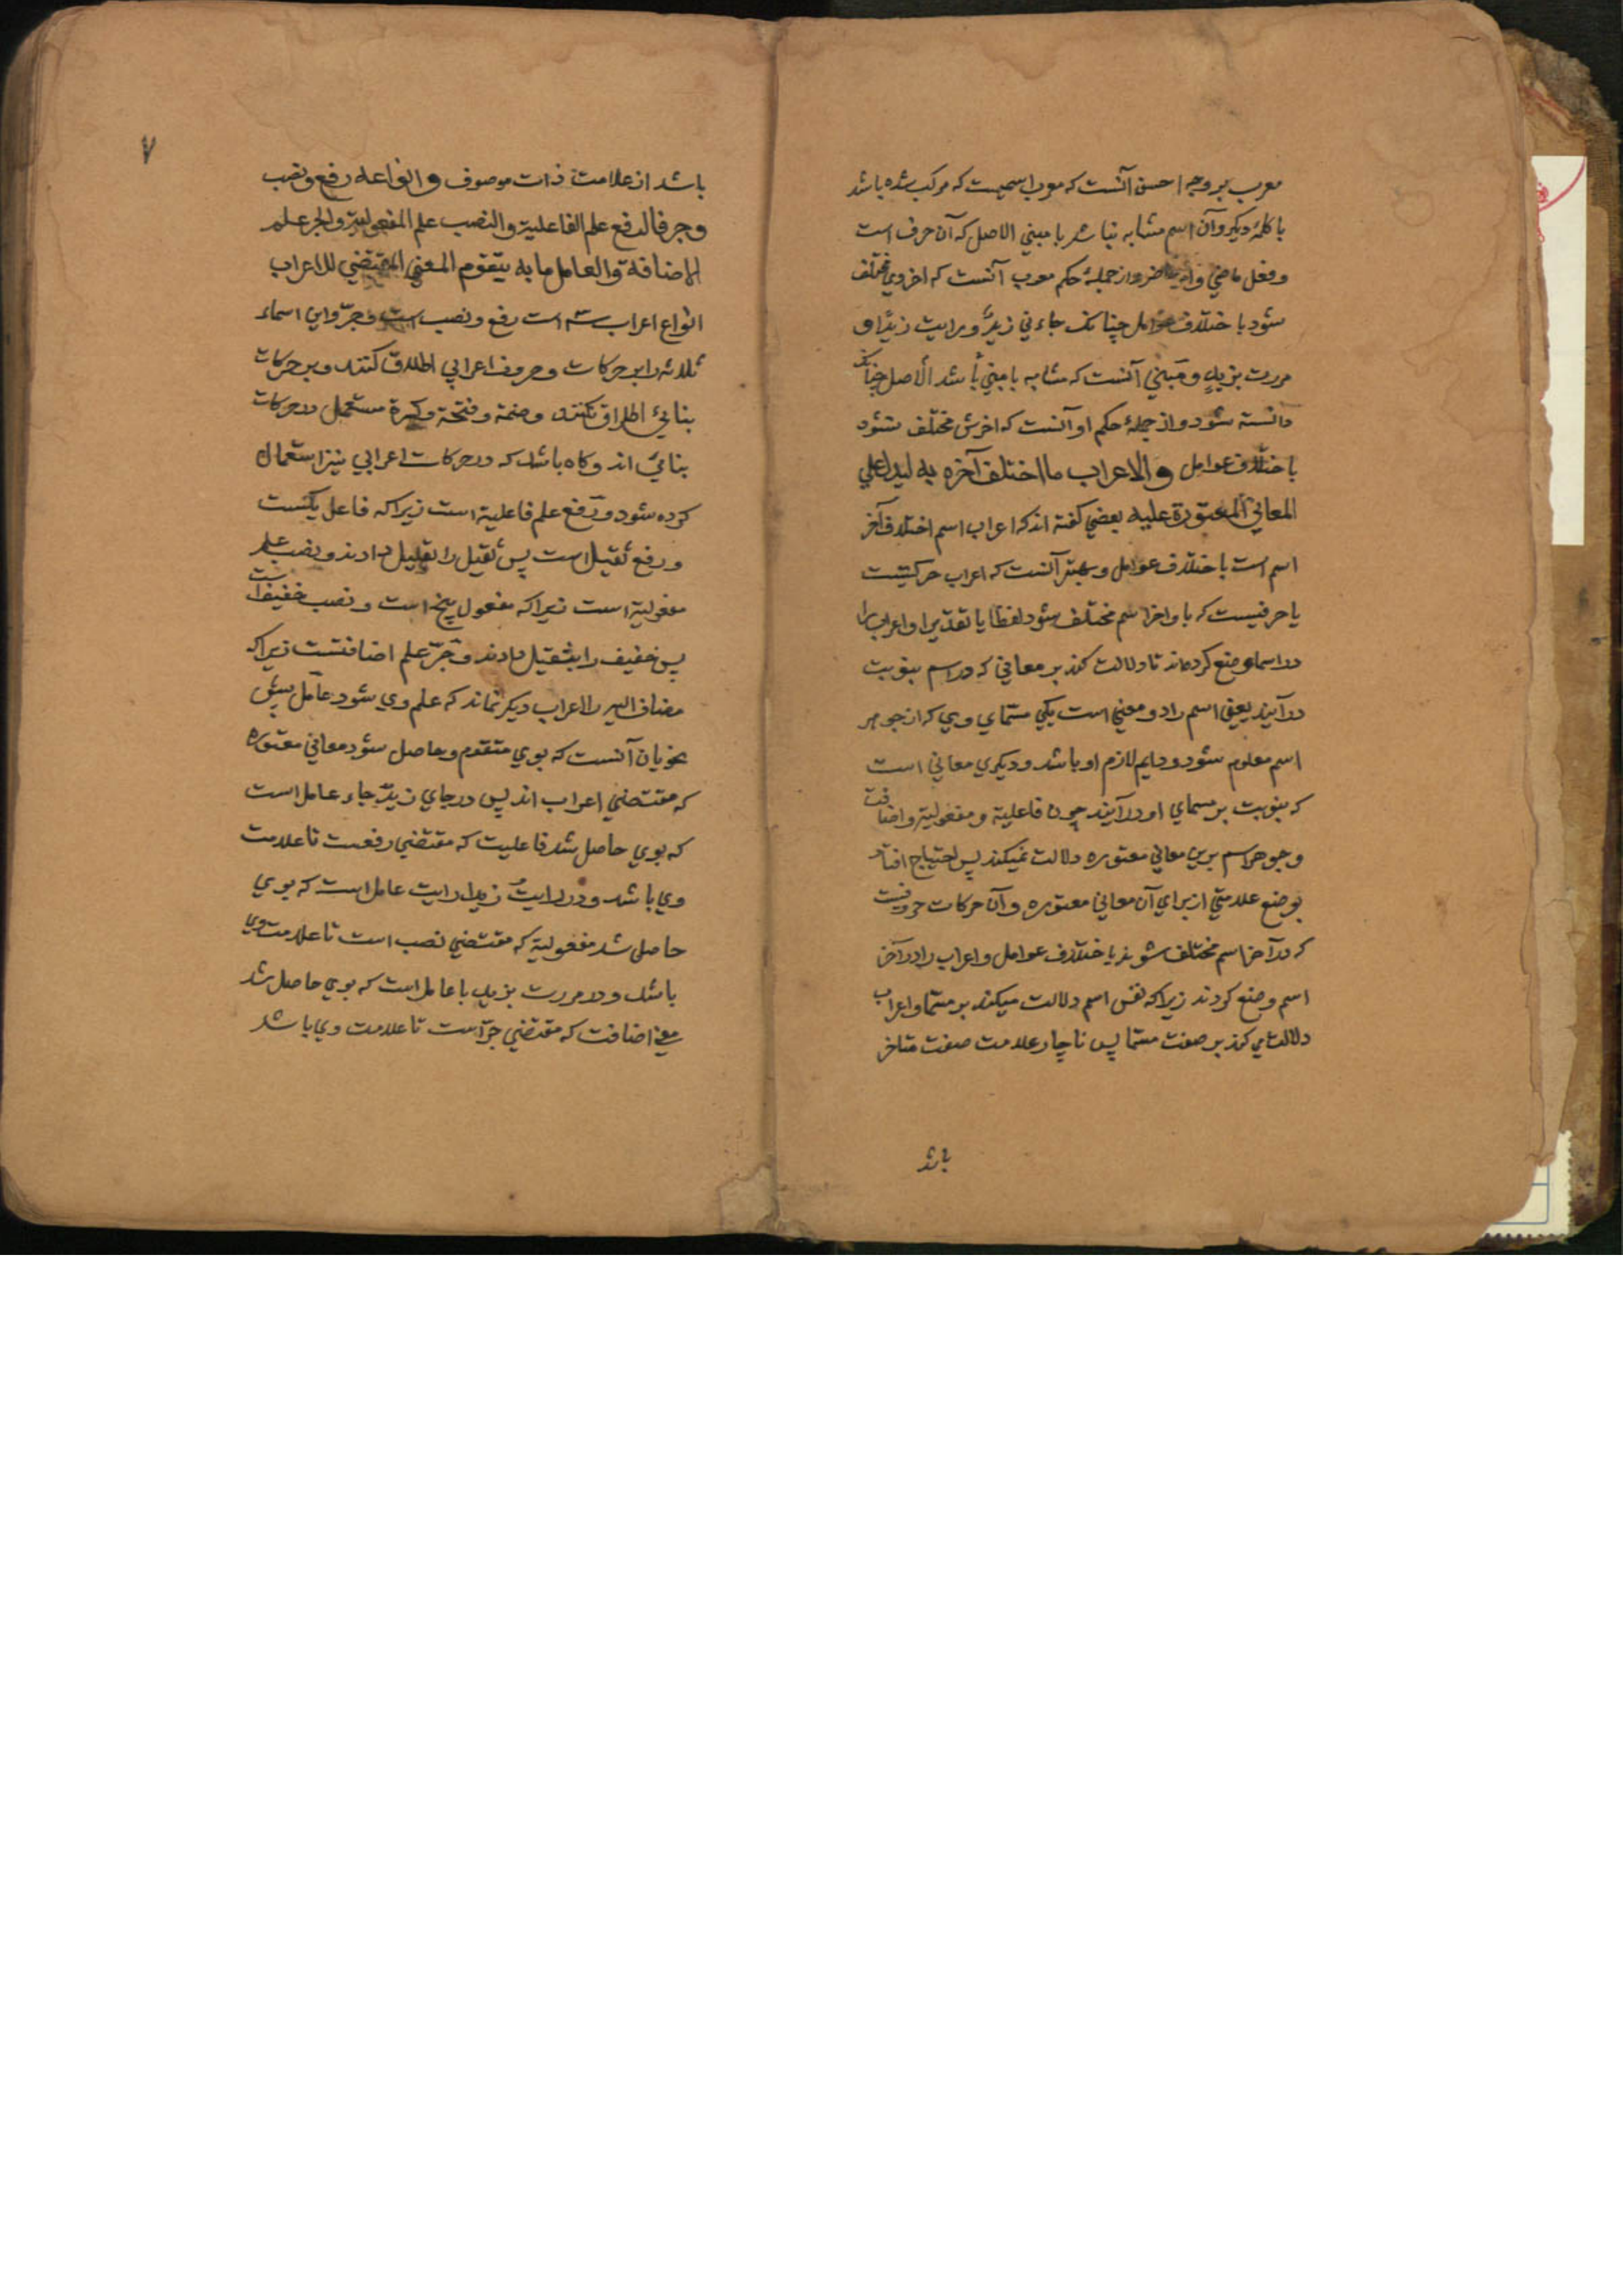 معرب بر وجه احسن آنست که معرب اسمیست که مرکب شده باشد
با کلمهٔ دیکر و آن اسم مشابه نباشد با مبنی الاصل که آن حرف است
و فعل ماضی و امر حاضر و از جملهٔ حکم معرب آنست که اخر وی مختلف
شود باختلاف عوامل چنانک جاءنی زیدٌ و رایت زیدًا و
مررت بزیدٍ و مبنی آنست که مشابه با مبنی باشد الاصل چنانک
دانسته شود و از جملهٔ حکم او آنست که اخرش مختلف نشود
باختلاف عوامل والاعراب ما اختلف آخره به لیدل علی
المعانی المعتورة علیه بعضی کفته اند که اعراب اسم اختلاف آخر
اسم است باختلاف عوامل و بهتر آنست که اعراب حرکتیست
یا حرفیست که باو اخر اسم مختلف شود لفظا یا تقدیرا و اعراب را
در اسما وضع کرده‌اند تا دلالت کند بر معانی که در اسم بنوبت
در آیند یعنی اسم را دو معنی است یکی مسمای وی که از جوهر
اسم معلوم شود و دایم لازم او باشد و دیکری معانی است
که بنوبت بر مسمای او در آیند چون فاعلیة و مفعولیة و اضافت
و جوهر اسم برین معانی معتوره دلالت نمیکند پس احتیاج افتاد
بوضع علامتی از برای آن معانی معتوره و آن حرکات حروفیست
که در آخر اسم مختلف شوند باختلاف عوامل و اعراب را در آخر
اسم وضع کردند زیرا که نفس اسم دلالت میکند بر مسما و اعراب
دلالت می کند بر صفت مسما پس ناچار علامت صفت متاخر
باشد
۷
باشد از علامت ذات موصوف و انواعه رفع و نصب
و جر فالرفع علم الفاعلیة والنصب علم المفعولیة والجر علم
الاضافة والعامل ما به یتقوم المعنی المقتضی للاعراب
انواع اعراب سه است رفع و نصب است و جرّ و این اسماء
ثلاثه را بر حرکات و حروف اعرابی اطلاق کنند و بر حرکات
بنایی اطلاق نکنند و ضمة و فتحة و کسرة مستعمل در حرکات
بنایی اند و کاه باشد که در حرکات اعرابی نیز استعمال
کرده شود و رفع علم فاعلیة است زیرا که فاعل یکیست
و رفع ثقیل است پس ثقیل را بقلیل دادند و نصب علم
مفعولیة است زیرا که مفعول پنج است و نصب خفیف است
پس خفیف را بثقیل دادند و جرّ علم اضافتست زیرا که
مضاف الیه را اعراب دیکر نماند که علم وی شود عامل پیش
نحویان آنست که بوی متقوم و حاصل شود معانی معتوره
که مقتضی اعراب اند پس در جای زیدٌ جاء عامل است
که بوی حاصل شد فاعلیت که مقتضی رفعست تا علامت
وی باشد و در رایت زیدا رایت عامل است که بوی
حاصل شد مفعولیة که مقتضی نصب است تا علامت وی
باشد و در مررت بزید با عامل است که بوی حاصل شد
معنی اضافت که مقتضی جرّ است تا علامت وی باشد